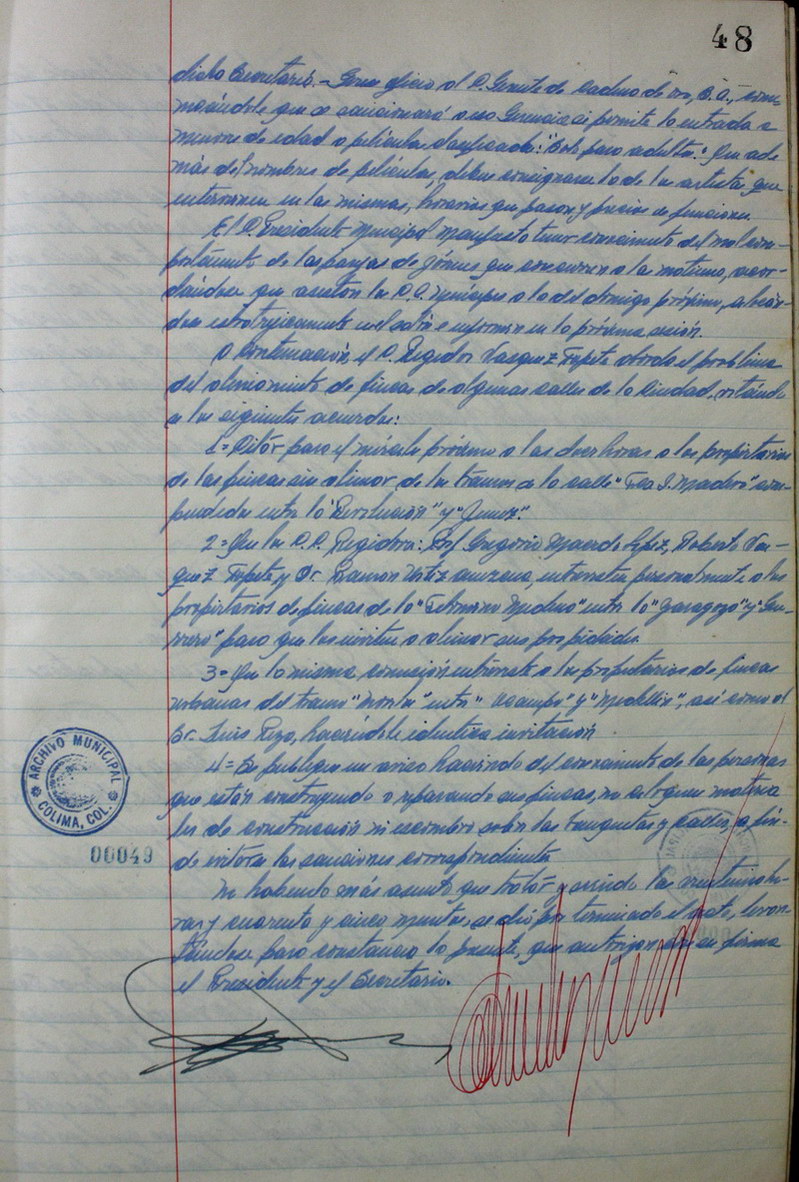 48
dicho Secretario.- Girar oficio al C. Gerente de Cadena de Oro, S.A., comu-
nicándole que se sancionará a esa Gerencia si permite la entrada a
menores de edad a película clasificada: "Solo para adultos." Que ade
más del nombre de películas, deben consignarse los de los artistas que
intervienen en las mismas, horarios que pasan y precios de funciones.
El C. Presidente Municipal manifiesta tener conocimiento del mal com-
portamiento de las parejas de jóvenes que concurren a la matinee, acor-
dándose que asistan los C.C. Munícipes a la del domingo próximo,
estratégicamente en el salón e informar en la próxima sesión.
A continuación el C. Regidor Vasquez Tapete aborda el problema
del alineamiento de fincas de algunas calles de la Ciudad,
a los siguientes acuerdos:
1= Citar para el miércoles próximo a las doce horas a los propietarios
de las fincas sin alinear de los tramos de la calle "Fco. I. Madero" com-
prendida entre la "Revolución" y "Juárez".
2= Que los C.C. Regidores: Prof. Gregorio Macedo López, Roberto Vas-
quez Tapete y Dr. Ramon entrevisten personalmente a los
propietarios de fincas de la "Filomeno Medina" entre la "Zaragoza" y "Gue-
rrero" para que los inviten a alinear sus propiedades.
3= Que la misma comisión entreviste a los propietarios de fincas
urbanas del tramo "Morelos" entre "Ocampo" y "Medellín", así como al
Sr. Luis Rizo, haciéndole identica invitación.
4= Se publique un aviso haciendo del conocimiento de las personas
que están construyendo o reparando sus fincas, no coloquen materia
les de construcción ni escombro sobre las banquetas y calles, a fin
de evitarse las sanciones correspondientes.
No habiendo más asunto que tratar y siendo las veintiuna ho-
ras y cuarenta y cinco minutos, se dió por terminado el acto, levan-
tándose para constancia la presente, que autorizan con su firma
el Presidente y el Secretario.
ARCHIVO MUNICIPAL
COLIMA, COL.
00049